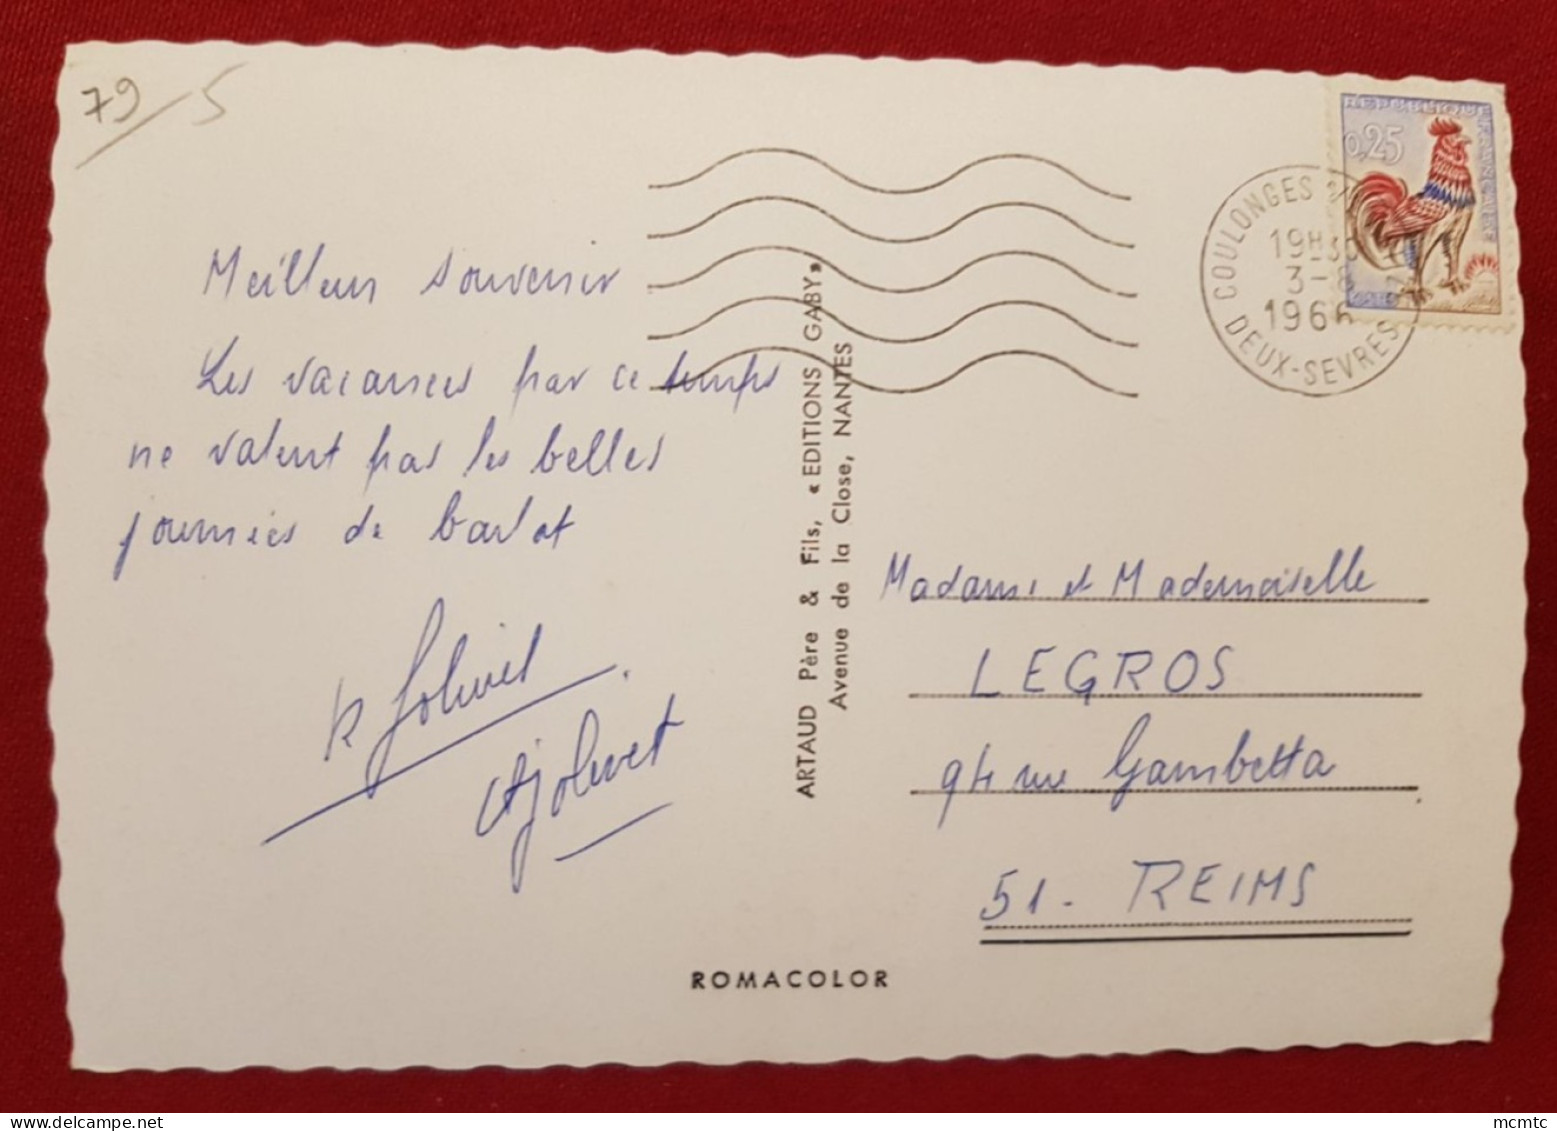 79/5
Meilleur souvenir
Les vacances par ce temps
ne valent pas les belles
journées de
R Jolivet
A Jolivet
ARTAUD Père & Fils, « EDITIONS GABY »
Avenue de la Close, NANTES
ROMACOLOR
REPUBLIQUE FRANCAISE
0,25
COULONGES S/
19H30
3-8
1966
DEUX-SEVRES
Madame et Mademoiselle
LEGROS
94 rue Gambetta
51. REIMS
mcmtc
www.delcampe.net